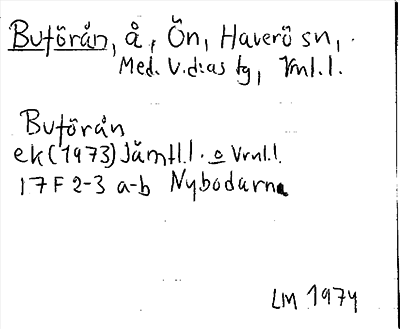 Buförån, å, Ön, Haverö sn,
Med. v. d:as tg, Vml.l.
Buförån
ek (1973) Jämtl.l. o Vrnl.l.
17F 2-3 a-b Nybodarna
LM 1974